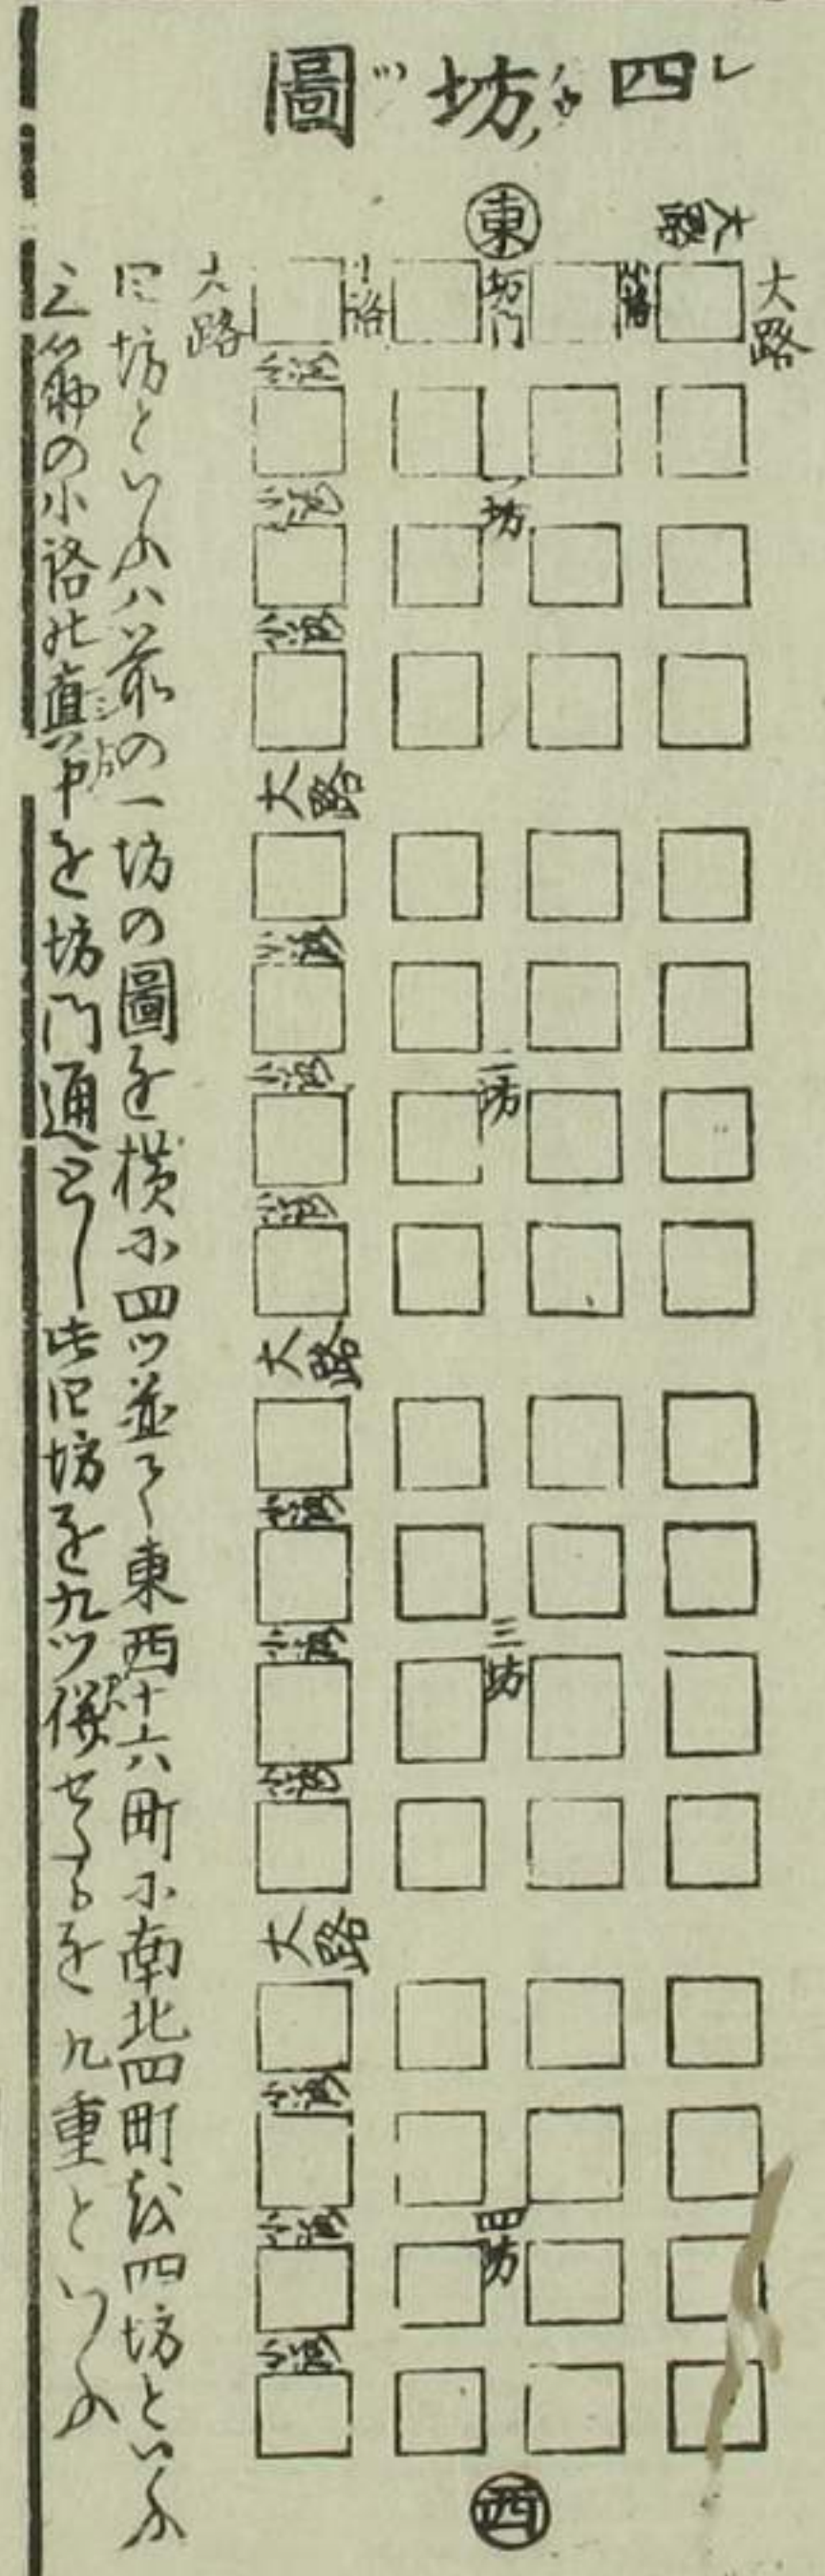 四坊圖
東
大路
大路
小路
坊門
小路
大路
小路
一坊
小路
小路
大路
小路
二坊
小路
小路
大路
小路
三坊
小路
小路
大路
小路
四坊
小路
小路
西
四坊といふハ前の一坊の圖を横に四ツ並て東西十六町に南北四町を四坊といふ
三筋の小路の真中を坊門通とし此四坊を九ツ併せたるを九重といふ